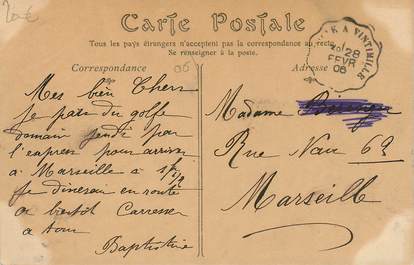 20€
Carte Postale
Tous les pays étrangers n'acceptent pas la correspondance au recto
Se renseigner à la poste.
Correspondance
Adresse
06
A VINTIMILLE
28
FEVR
06
Mes bien Chers
Je pars du golfe
demain jeudi par
l'express pour arriver
à Marseille à
Je dinerai en route
à bientôt Caresses
à tous
Baptistine
Madame
Rue Nau 69
Marseille